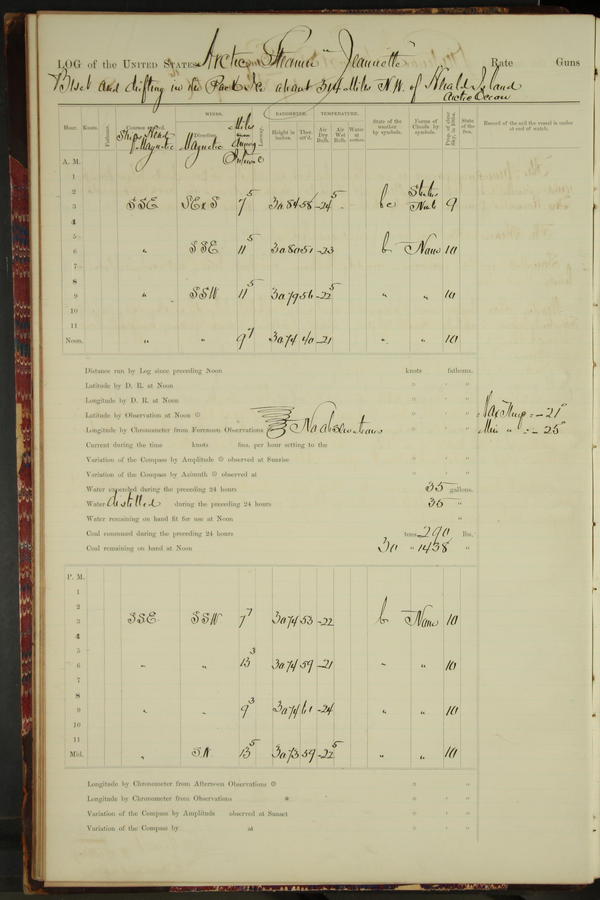 LOG of the UNITED STATES Arctic Steamer "Jeannette" Rate Guns
Beset and drifting in the Pack Ice about 314 Miles N.W. of Herald Island
Arctic Ocean
WINDS. BAROMETER. TEMPERATURE.
Hour. Knots. Fathoms. Ships Head Magnetic Direction Magnetic Miles during Height in inches. Ther. att'd. Air Dry Bulb. Air Wet Bulb. Water at surface. State of the weather by symbols. Forms of Clouds by symbols. Prop. of clear Sky, in 10ths. State of the Sea. Record of the sail the vessel is under at end of watch.
A. M.
1
2
3 SSE SE x S 7 5 30.84 58 -24 5 bc 9
4
5
6 " SSE 11 5 30.80 51 -23 b None 10
7
8
9 " SSW 11 5 30.79 56 -22 5 " " 10
10
11
Noon. " " 9 7 30.74 40 -21 " " 10
Distance run by Log since preceding Noon knots fathoms.
Latitude by D. R. at Noon ° ' "
Longitude by D. R. at Noon ° ' "
Latitude by Observation at Noon ☉ ° ' " Max Temp = -21°
Longitude by Chronometer from Forenoon Observations No observations ° ' " Min " = -25°
Current during the time knots fms. per hour setting to the
Variation of the Compass by Amplitude ☉ observed at Sunrise ° ' "
Variation of the Compass by Azimuth ☉ observed at ° ' "
Water expended during the preceding 24 hours 35 gallons.
Water distilled during the preceding 24 hours 35 "
Water remaining on hand fit for use at Noon "
Coal consumed during the preceding 24 hours tons 290 lbs.
Coal remaining on hand at Noon 30 " 1438 "
P. M.
1
2
3 SSE SSW 7 7 30.74 53 -22 b None 10
4
5
6 " " 13 3 30.74 59 -21 " " 10
7
8
9 " " 9 3 30.74 61 -24 " " 10
10
11
Mid. " S.W. 13 5 30.73 59 -22 5 " " 10
Longitude by Chronometer from Afternoon Observations ☉ ° ' "
Longitude by Chronometer from Observations * ° ' "
Variation of the Compass by Amplitude observed at Sunset ° ' "
Variation of the Compass by at ° ' "